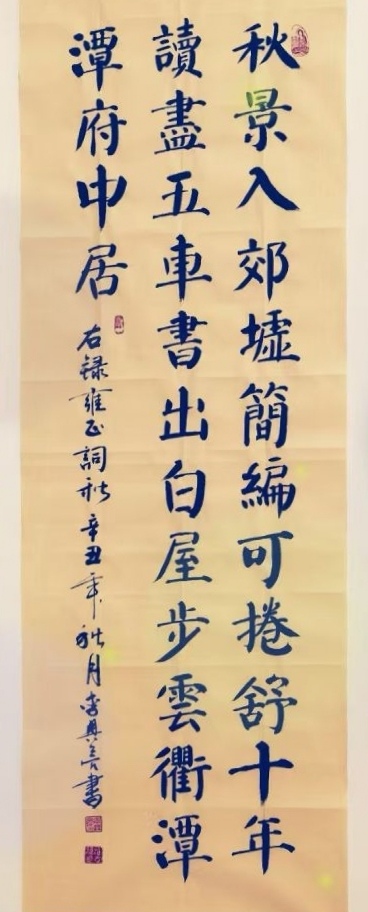 秋景入郊墟簡編可捲舒十年
讀盡五車書出白屋步雲衢潭
潭府中居
右錄雍正詞秋辛丑年秋月李興亮書